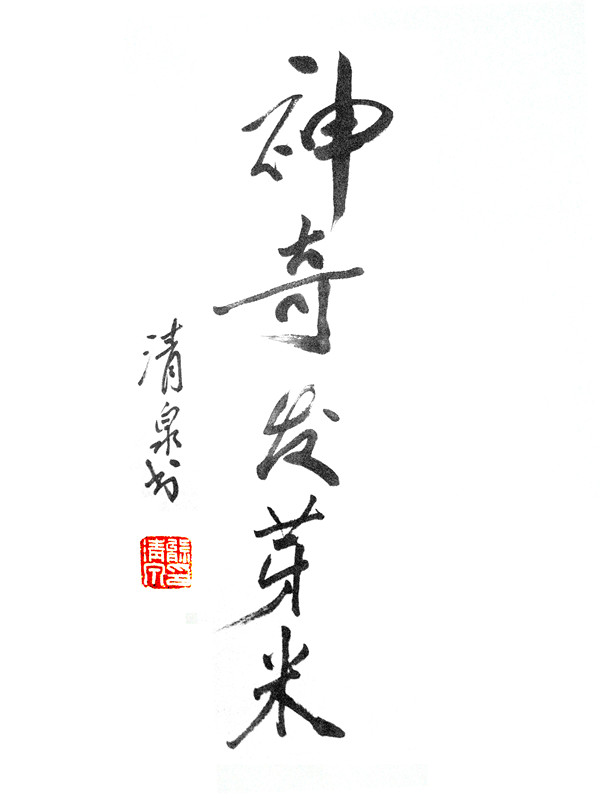 神奇发芽米
清泉书